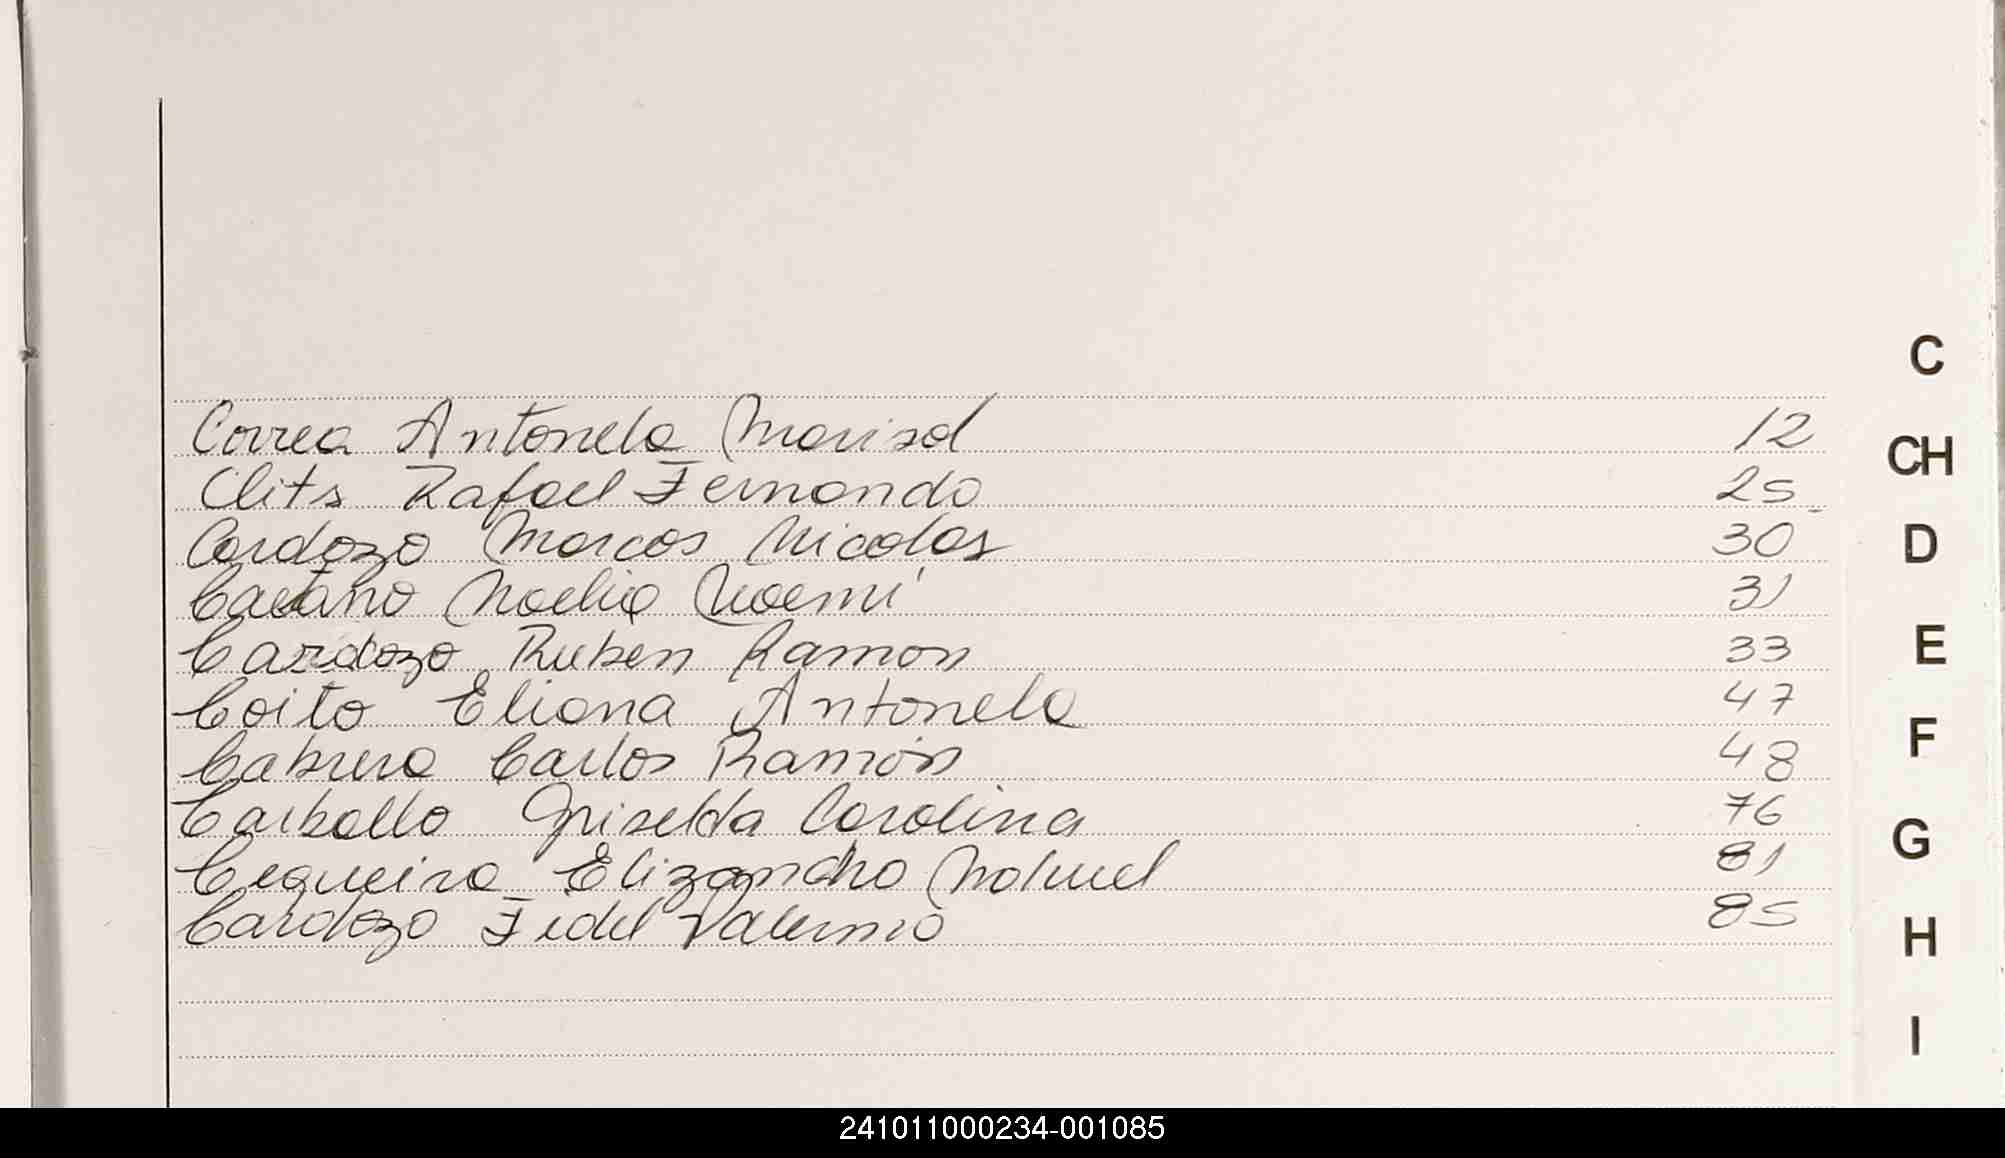 Correa Antonela Marisol 12
Clits Rafael Fernando 25
Cardozo Marcos Nicolas 30
C
Caetano Noelia Noemi 31
CH
Cardozo Ruben Ramon 33
D
Coito Eliana Antonela 47
E
Cabrera Carlos Ramón 48
F
Carballo Griselda Carolina 76
G
Cequeira Elizandro Nahuel 81
Cardozo Fidel Valerio 85
H
I
241011000234-001085